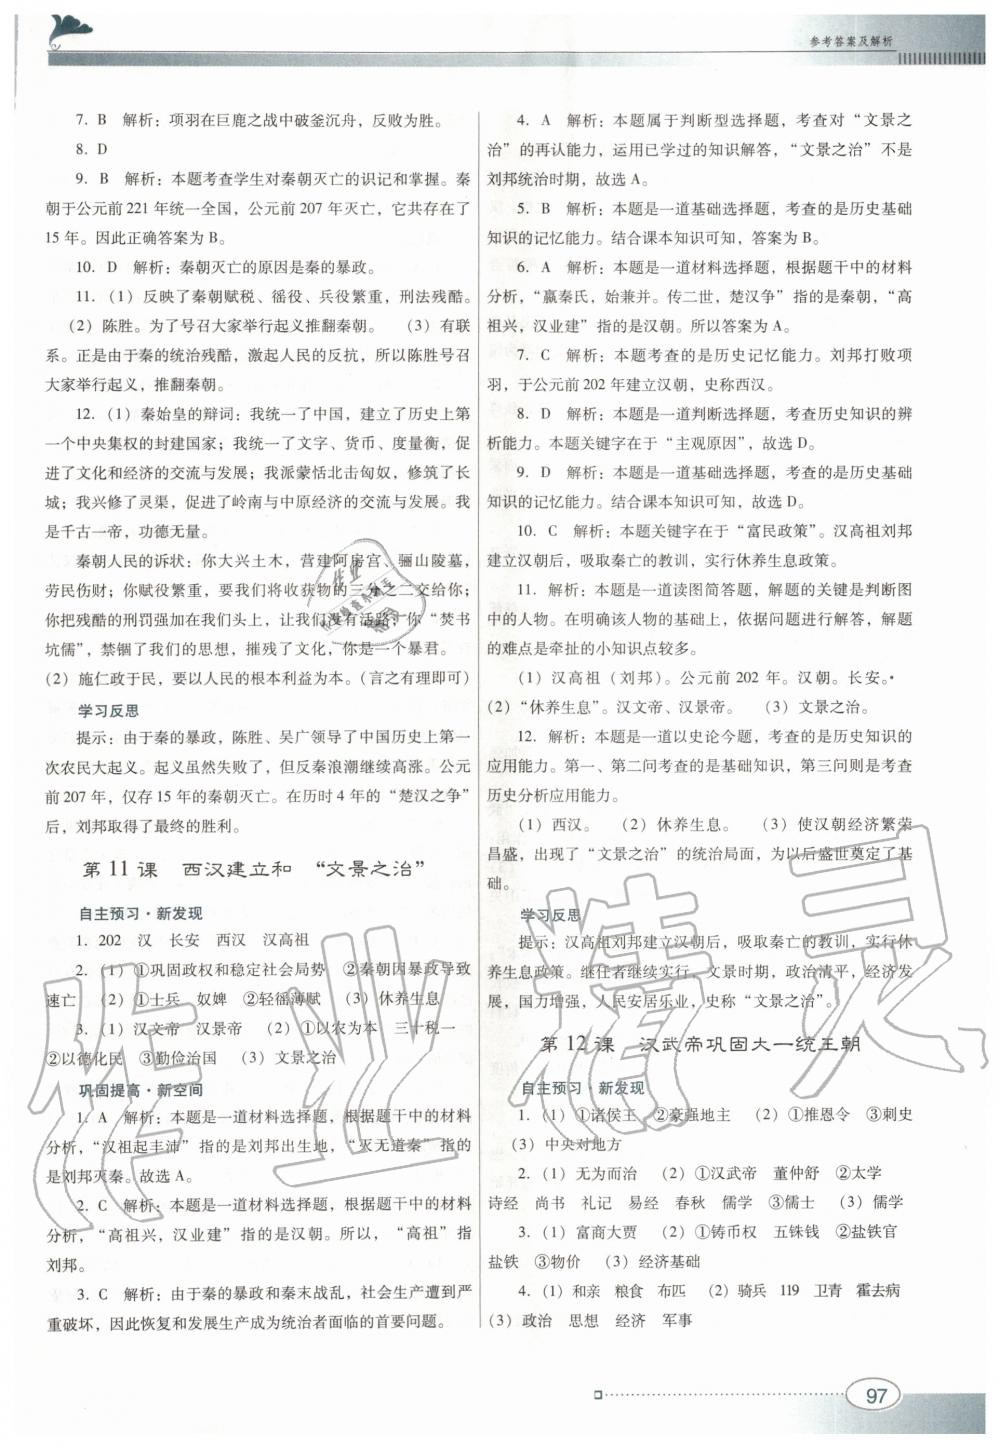 参考答案及解析
7. B 解析：项羽在巨鹿之战中破釜沉舟，反败为胜。
8. D
9. B 解析：本题考查学生对秦朝灭亡的识记和掌握。秦
朝于公元前 221 年统一全国，公元前 207 年灭亡，它共存在了
15 年。因此正确答案为 B。
10. D 解析：秦朝灭亡的原因是秦的暴政。
11.（1）反映了秦朝赋税、徭役、兵役繁重，刑法残酷。
（2）陈胜。为了号召大家举行起义推翻秦朝。 （3）有联
系。正是由于秦的统治残酷，激起人民的反抗，所以陈胜号召
大家举行起义，推翻秦朝。
12.（1）秦始皇的辩词：我统一了中国，建立了历史上第
一个中央集权的封建国家；我统一了文字、货币、度量衡，促
进了文化和经济的交流与发展；我派蒙恬北击匈奴，修筑了长
城；我兴修了灵渠，促进了岭南与中原经济的交流与发展。我
是千古一帝，功德无量。
秦朝人民的诉状：你大兴土木，营建阿房宫、骊山陵墓，
劳民伤财；你赋役繁重，要我们将收获物的三分之二交给你；
你把残酷的刑罚强加在我们头上，让我们没有活路；你“焚书
坑儒”，禁锢了我们的思想，摧残了文化，你是一个暴君。
（2）施仁政于民，要以人民的根本利益为本。（言之有理即可）
学习反思
提示：由于秦的暴政，陈胜、吴广领导了中国历史上第一
次农民大起义。起义虽然失败了，但反秦浪潮继续高涨。公元
前 207 年，仅存 15 年的秦朝灭亡。在历时 4 年的“楚汉之争”
后，刘邦取得了最终的胜利。
第 11 课 西汉建立和 “文景之治”
自主预习·新发现
1. 202 汉 长安 西汉 汉高祖
2.（1）①巩固政权和稳定社会局势 ②秦朝因暴政导致
速亡 （2）①士兵 奴婢 ②轻徭薄赋 （3）休养生息
3.（1）汉文帝 汉景帝 （2）①以农为本 三十税一
②以德化民 ③勤俭治国 （3）文景之治
巩固提高·新空间
1. A 解析：本题是一道材料选择题，根据题干中的材料
分析，“汉祖起丰沛”指的是刘邦出生地，“灭无道秦”指的
是刘邦灭秦。故选 A。
2. C 解析：本题是一道材料选择题，根据题干中的材料
分析，“高祖兴，汉业建”指的是汉朝。所以，“高祖”指
刘邦。
3. C 解析：由于秦的暴政和秦末战乱，社会生产遭到严
重破坏，因此恢复和发展生产成为统治者面临的首要问题。
4. A 解析：本题属于判断型选择题，考查对“文景之
治”的再认能力，运用已学过的知识解答，“文景之治”不是
刘邦统治时期，故选 A。
5. B 解析：本题是一道基础选择题，考查的是历史基础
知识的记忆能力。结合课本知识可知，答案为 B。
6. A 解析：本题是一道材料选择题，根据题干中的材料
分析，“嬴秦氏，始兼并。传二世，楚汉争”指的是秦朝，“高
祖兴，汉业建”指的是汉朝。所以答案为 A。
7. C 解析：本题考查的是历史记忆能力。刘邦打败项
羽，于公元前 202 年建立汉朝，史称西汉。
8. D 解析：本题是一道判断选择题，考查历史知识的辨
析能力。本题关键字在于“主观原因”，故选 D。
9. D 解析：本题是一道基础选择题，考查的是历史基础
知识的记忆能力。结合课本知识可知，故选 D。
10. C 解析：本题关键字在于“富民政策”。汉高祖刘邦
建立汉朝后，吸取秦亡的教训，实行休养生息政策。
11. 解析：本题是一道读图简答题，解题的关键是判断图
中的人物。在明确该人物的基础上，依据问题进行解答，解题
的难点是牵扯的小知识点较多。
（1）汉高祖（刘邦）。公元前 202 年。汉朝。长安。
（2）“休养生息”。汉文帝、汉景帝。 （3）文景之治。
12. 解析：本题是一道以史论今题，考查的是历史知识的
应用能力。第一、第二问考查的是基础知识，第三问则是考查
历史分析应用能力。
（1）西汉。 （2）休养生息。 （3）使汉朝经济繁荣
昌盛，出现了“文景之治”的统治局面，为以后盛世奠定了基
础。
学习反思
提示：汉高祖刘邦建立汉朝后，吸取秦亡的教训，实行休
养生息政策。继任者继续实行，文景时期，政治清平，经济发
展，国力增强，人民安居乐业，史称“文景之治”。
第 12 课 汉武帝巩固大一统王朝
自主预习·新发现
1.（1）①诸侯王 ②豪强地主 （2）①推恩令 ③刺史
（3）中央对地方
2.（1）无为而治 （2）①汉武帝 董仲舒 ②太学
诗经 尚书 礼记 易经 春秋 儒学 ③儒士 （3）儒学
3.（1）富商大贾 （2）①铸币权 五铢钱 ②盐铁官
盐铁 ③物价 （3）经济基础
4.（1）和亲 粮食 布匹 （2）骑兵 119 卫青 霍去病
（3）政治 思想 经济 军事
97
作业精灵